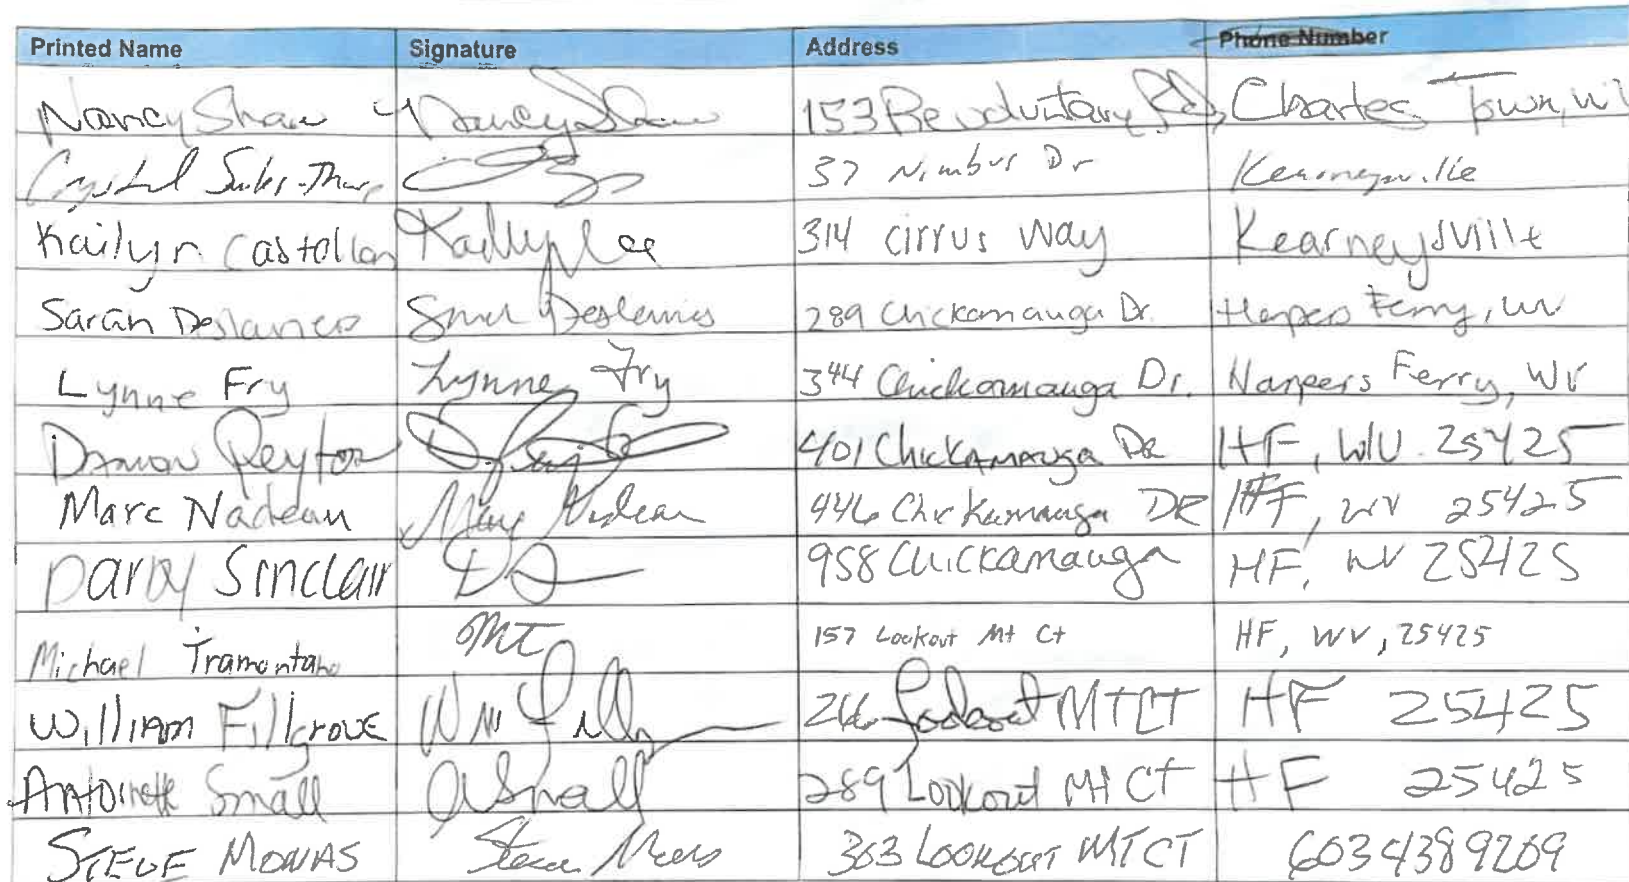 Printed Name Signature Address Phone Number
Nancy Shaw Nancy Shaw 153 Revoluntary Rd, Charles Town, WV
Crystal 37 Nimbus Dr Kearneysville
Kailyn Castollan 314 Cirrus Way Kearneysville
Sarah Deslauries 289 Chickamauga Dr. Harpers Ferry, WV
Lynne Fry Lynne Fry 344 Chickamauga Dr. Harpers Ferry, WV
Damon Peyton 401 Chickamauga DR HF, WV 25425
Marc Nadeau Marc Nadeau 446 Chickamauga DR HF, WV 25425
Darby Sinclair DS 958 Chickamauga HF, WV 25425
Michael Tramontano MT 157 Lookout Mt Ct HF, WV, 25425
William Fillgrove Wm 266 Lookout MT CT HF 25425
Antoinette Small A Small 289 Lookout Mt CT HF 25425
STEVE MONAS 363 LOOKOUT MT CT 6034389269